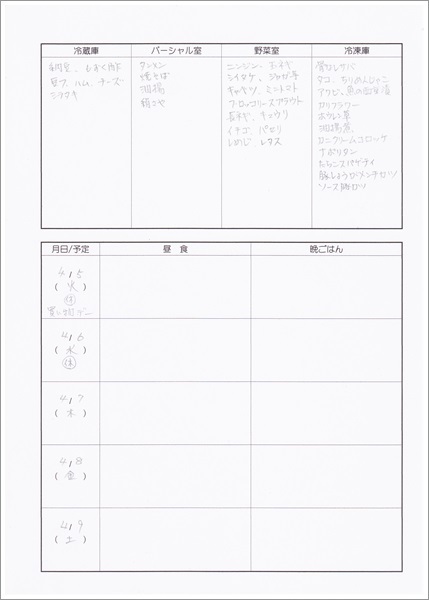 冷蔵庫
パーシャル室
野菜室
冷凍庫
ハム、チーズ
焼そば
ニンジン、玉ネギ
シイタケ、ジャガ芋
キャベツ、ミニトマト
ブロッコリースプラウト
長ネギ、キュウリ
イチゴ、パセリ
しめじ、レタス
タコ、ちりめんじゃこ
カリフラワー
ホウレン草
カニクリームコロッケ
ナポリタン
たらこスパゲティ
豚しょうがメンチカツ
ソース豚カツ
月日/予定
昼 食
晩ごはん
4/5
(火)
休
買い物デー
4/6
(水)
休
4/7
(木)
4/8
(金)
4/9
(土)